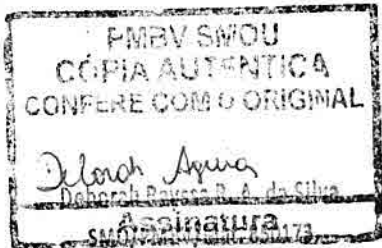 PMBV SMOU
CÓPIA AUTENTICA
CONFERE COM O ORIGINAL
Deborah
Deborah R. A. da Silva
Assinatura